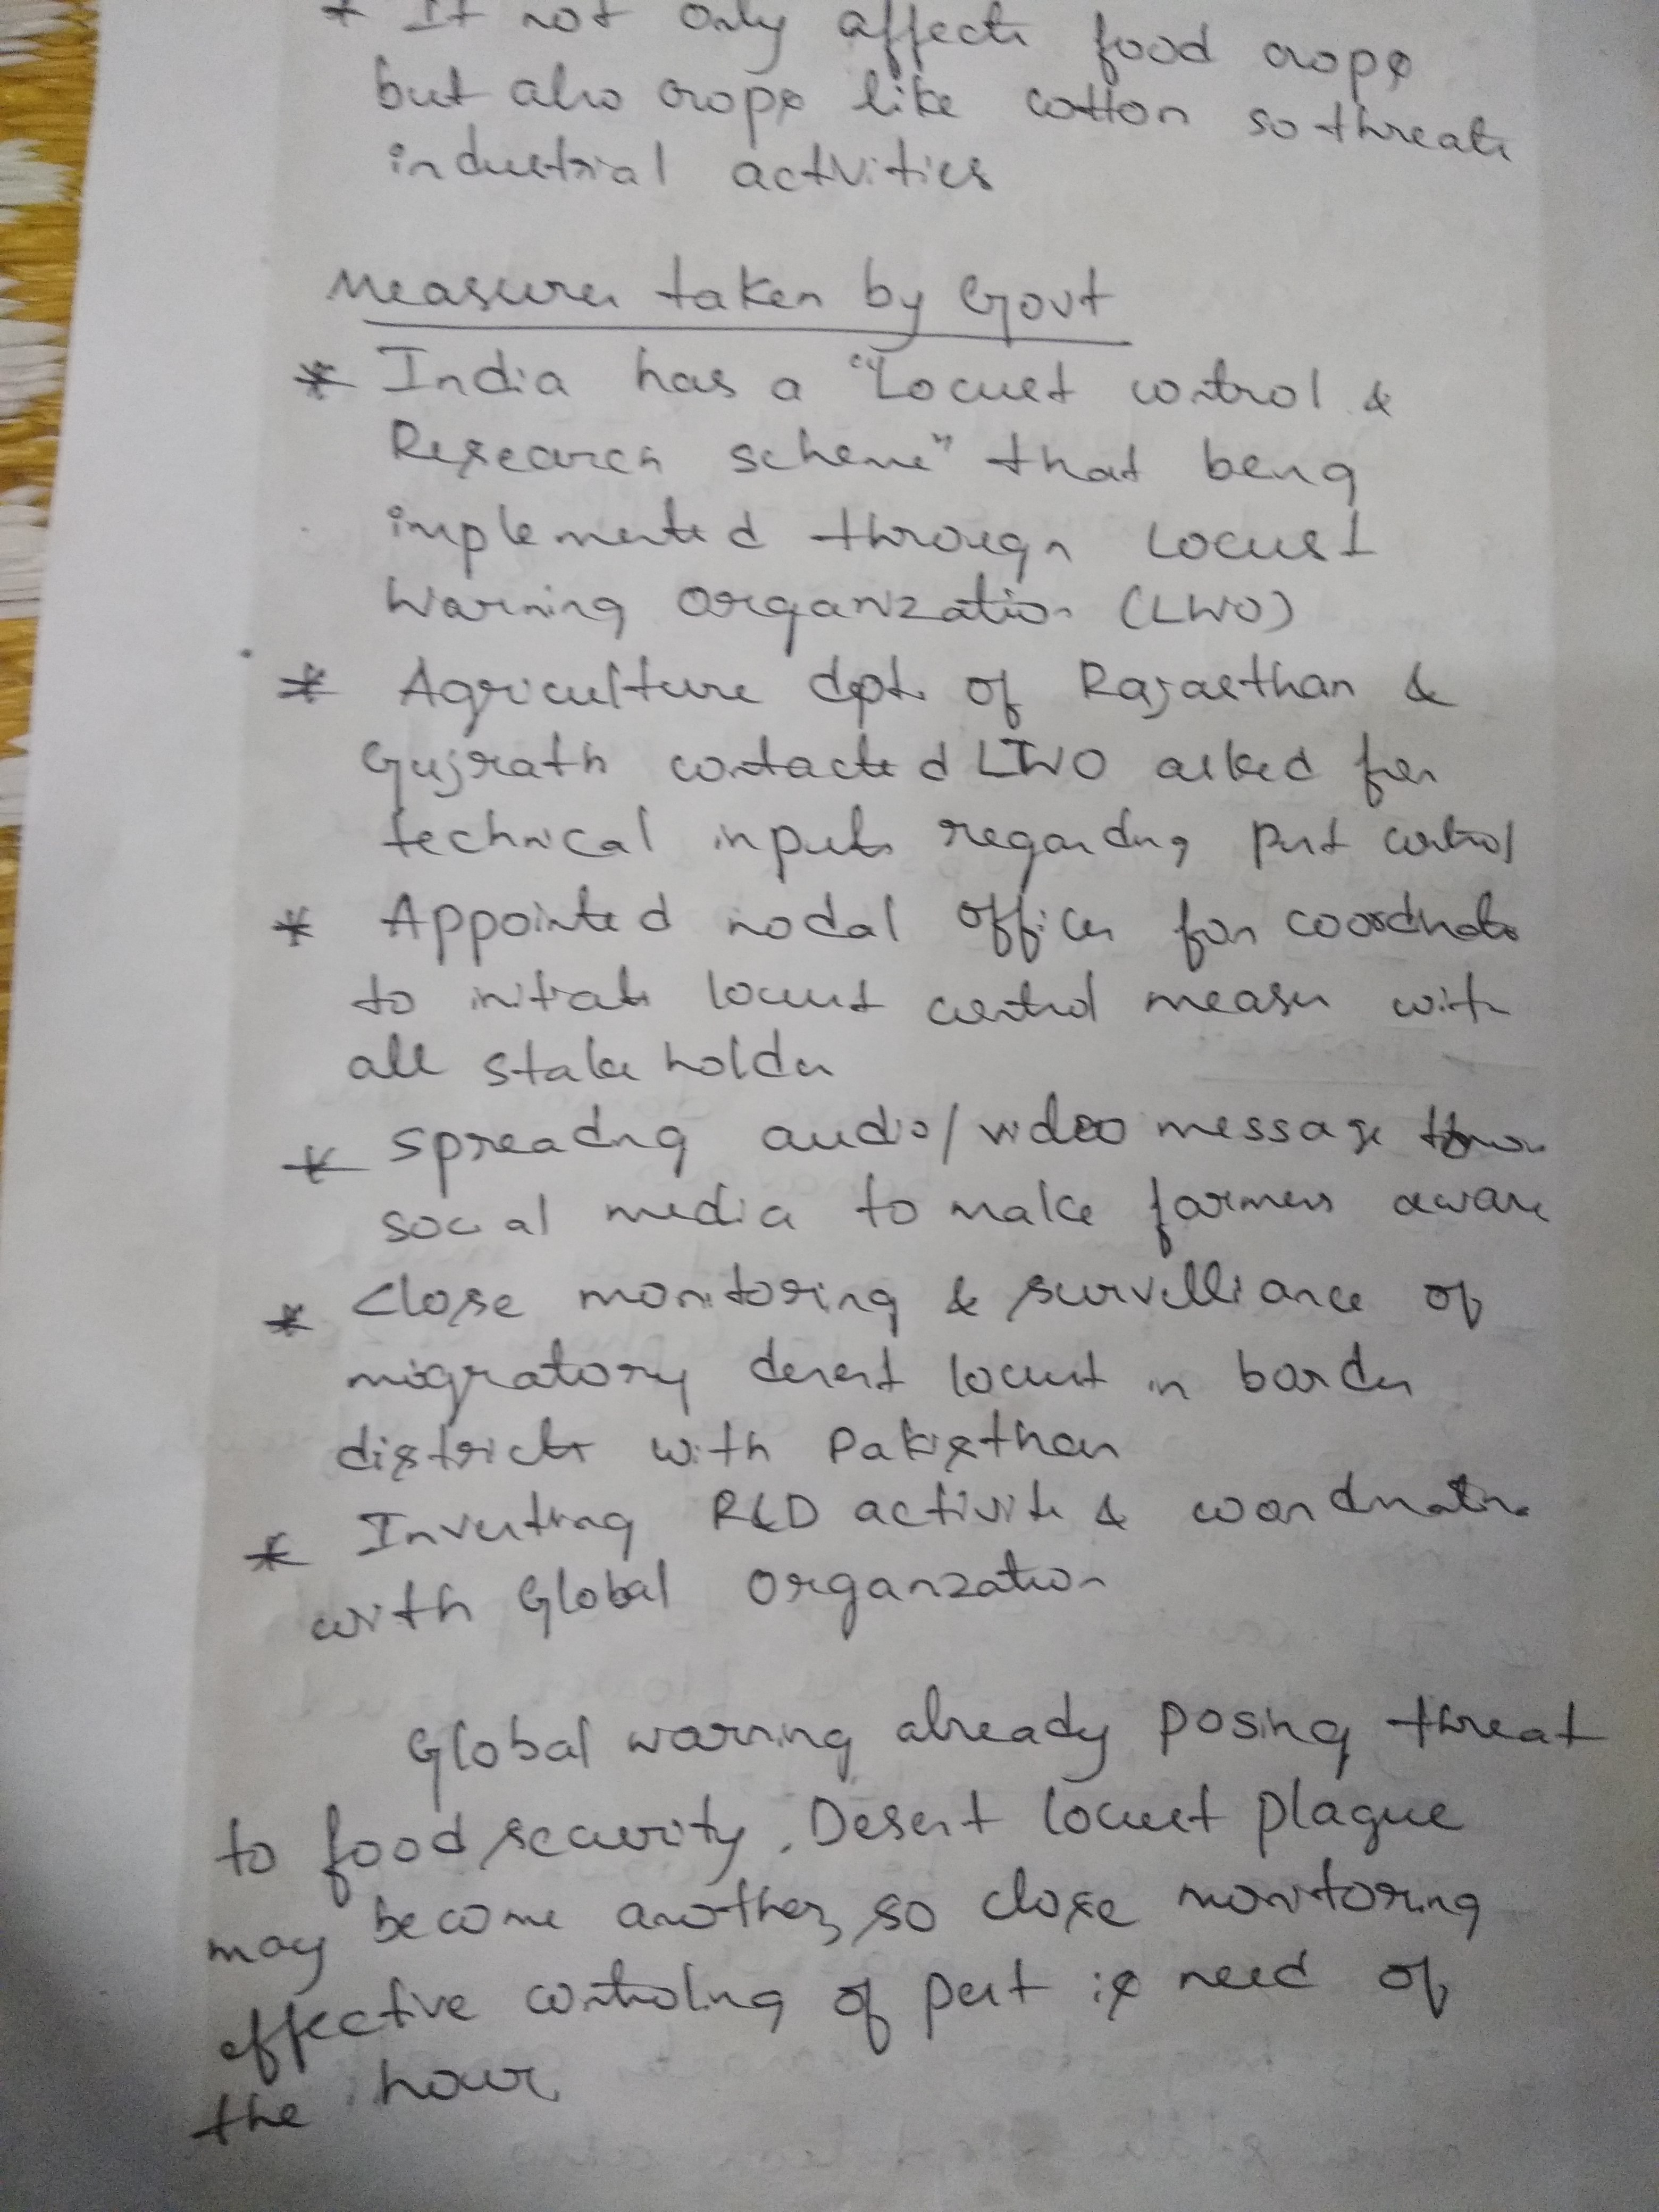 * It not only affects food crops
but also crops like cotton so threats
industrial activities
Measures taken by Govt
* India has a "Locust control &
Research scheme" that being
implemented through Locust
Warning Organization (LWO)
* Agriculture dpt. of Rajasthan &
Gujrath contacted LWO asked for
technical inputs regarding pest control
* Appointed nodal officer for coordinate
to initiate locust control measure with
all stake holder
* Spreading audio/video message
social media to make farmers aware
* Close monitoring & survelliance of
migratory desert locust in border
districts with Pakisthan
* Investing R&D activite & coordination
with Global Organization
Global warning already posing threat
to food security. Desert locust plague
may become another, so close monitoring
effective controling of pest is need of
the hour